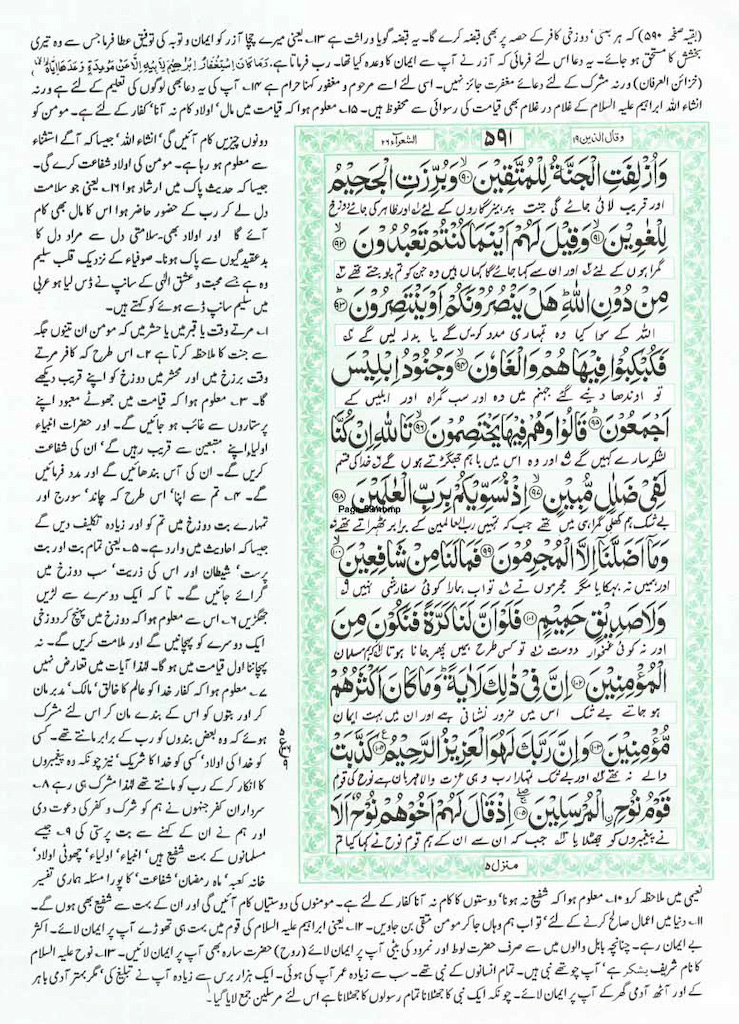 (بقیہ صفحہ ۵۹۰) کہ ہر بستی' دوزخی کافر کے حصہ پر بھی قبضہ کرے گا۔ یہ قبضہ گویا وراثت ہے ۱۳۔ یعنی میرے چچا آزر کو ایمان و توبہ کی توفیق عطا فرما جس سے وہ تیری
بخشش کا مستحق ہو جائے۔ یہ دعا اس لئے فرمائی کہ آزر نے آپ سے ایمان کا وعدہ کیا تھا۔ رب فرماتا ہے۔ وَمَا كَانَ اسْتِغْفَارُ اِبْرٰهِيْمَ لِاَبِيْهِ اِلَّا عَنْ مَّوْعِدَةٍ وَّعَدَهَا اِيَّاهُ
(خزائن العرفان) ورنہ مشرک کے لئے دعائے مغفرت جائز نہیں۔ اسی لئے اسے مرحوم و مغفور کہنا حرام ہے ۱۴۔ آپ کی یہ دعا بھی لوگوں کی تعلیم کے لئے ہے ورنہ
انشاء اللہ ابراہیم علیہ السلام کے غلام در غلام بھی قیامت کی رسوائی سے محفوظ ہیں۔ ۱۵۔ معلوم ہوا کہ قیامت میں مال' اولاد کام نہ آنا' کفار کے لئے ہو گا۔ مومن کو
دونوں چیزیں کام آئیں گی' انشاء اللہ' جیسا کہ آگے استثناء
سے معلوم ہو رہا ہے۔ مومن کی اولاد شفاعت کرے گی۔
جیسا کہ حدیث پاک میں ارشاد ہوا ۱۶۔ یعنی جو سلامت
دل لے کر رب کے حضور حاضر ہوا اس کا مال بھی کام
آئے گا اور اولاد بھی۔ سلامتی دل سے مراد دل کا
بدعقیدگیوں سے پاک ہونا۔ صوفیاء کے نزدیک قلب سلیم
وہ ہے جسے محبت و عشق الٰہی کے سانپ نے ڈس لیا ہو عربی
میں سلیم سانپ ڈسے ہوئے کو کہتے ہیں۔
۱۔ مرتے وقت یا قبر میں یا حشر میں کہ مومن ان تینوں جگہ
سے جنت کا ملاحظہ کرتا ہے ۲۔ اس طرح کہ کافر مرتے
وقت برزخ میں اور محشر میں دوزخ کو اپنے قریب دیکھے
گا۔ ۳۔ معلوم ہوا کہ قیامت میں جھوٹے معبود اپنے
پرستاروں سے غائب ہو جائیں گے۔ اور حضرات انبیاء
اولیاء اپنے متبعین سے قریب رہیں گے' ان کی شفاعت
کریں گے۔ ان کی آس بندھائیں گے اور مدد فرمائیں
گے۔ ۴۔ تم سے اپنا' اس طرح کہ چاند' سورج اور
تمہارے بت دوزخ میں تم کو اور زیادہ تکلیف دیں گے
جیسا کہ احادیث میں وارد ہے۔ ۵۔ یعنی تمام بت اور بت
پرست' شیطان اور اس کی ذریت' سب دوزخ میں
گرائے جائیں گے۔ تا کہ ایک دوسرے سے لڑیں
جھگڑیں ۶۔ اس سے معلوم ہوا کہ دوزخ میں پہنچ کر دوزخی
ایک دوسرے کو پہچانیں گے اور ملامت کریں گے۔ نہ
پہچاننا اول قیامت میں ہو گا۔ لہٰذا آیات میں تعارض نہیں
۷۔ معلوم ہوا کہ کفار خدا کو عالم کا خالق' مالک' مدبر مان
کر اور بتوں کو اس کے بندے مان کر اس لئے مشرک
ہوئے کہ وہ بعض بندوں کو رب کے برابر مانتے تھے۔ کسی
کو خدا کی اولاد' کسی کو خدا کا شریک' نیز چونکہ وہ پیغمبروں
کا انکار کر کے رب کو مانتے تھے لہٰذا مشرک ہی رہے ۸۔
سرداران کفر جنہوں نے ہم کو شرک و کفر کی دعوت دی
اور ہم نے ان کے کہنے سے بت پرستی کی ۹۔ جیسے
مسلمانوں کے بہت شفیع ہیں' انبیاء' اولیاء' چھوٹی اولاد'
خانہ کعبہ' ماہ رمضان' شفاعت' کا پورا مسئلہ ہماری تفسیر
وقال الذین ۱۹
۵۹۱
الشعراء ۲۶
وَاُزْلِفَتِ الْجَنَّةُ لِلْمُتَّقِيْنَ ۙ۹۰ وَبُرِّزَتِ الْجَحِيْمُ
اور قریب لائی جائے گی جنت پرہیزگاروں کے لئے اور ظاہر کی جائے گی دوزخ
لِلْغٰوِيْنَ ۙ۹۱ وَقِيْلَ لَهُمْ اَيْنَمَا كُنْتُمْ تَعْبُدُوْنَ ۙ۹۲
گمراہوں کے لئے اور ان سے کہا جائے گا کہاں ہیں وہ جن کو تم پوجتے تھے
مِنْ دُوْنِ اللّٰهِ ؕ هَلْ يَنْصُرُوْنَكُمْ اَوْ يَنْتَصِرُوْنَ ؕ۹۳
اللہ کے سوا کیا وہ تمہاری مدد کریں گے یا بدلہ لیں گے
فَكُبْكِبُوْا فِيْهَا هُمْ وَالْغَاوٗنَ ۙ۹۴ وَجُنُوْدُ اِبْلِيْسَ
تو اوندھا دیئے گئے جہنم میں وہ اور سب گمراہ اور ابلیس کے
اَجْمَعُوْنَ ؕ۹۵ قَالُوْا وَهُمْ فِيْهَا يَخْتَصِمُوْنَ ۙ۹۶ تَاللّٰهِ اِنْ كُنَّا
لشکر سارے کہیں گے اور وہ اس میں باہم جھگڑتے ہوں گے خدا کی قسم
لَفِيْ ضَلٰلٍ مُّبِيْنٍ ۙ۹۷ اِذْ نُسَوِّيْكُمْ بِرَبِّ الْعٰلَمِيْنَ ۹۸
بے شک ہم کھلی گمراہی میں تھے جب کہ تمہیں رب العالمین کے برابر ٹھہراتے تھے
وَمَآ اَضَلَّنَآ اِلَّا الْمُجْرِمُوْنَ ۹۹ فَمَا لَنَا مِنْ شَافِعِيْنَ ۙ۱۰۰
اور ہمیں نہ بہکایا مگر مجرموں نے تو اب ہمارا کوئی سفارشی نہیں
وَلَا صَدِيْقٍ حَمِيْمٍ ۱۰۱ فَلَوْ اَنَّ لَنَا كَرَّةً فَنَكُوْنَ مِنَ
اور نہ کوئی غمخوار دوست تو کسی طرح ہمیں پھر جانا ہوتا کہ ہم مسلمان
الْمُؤْمِنِيْنَ ۱۰۲ اِنَّ فِيْ ذٰلِكَ لَاٰيَةً ؕ وَمَا كَانَ اَكْثَرُهُمْ
ہو جاتے بے شک اس میں ضرور نشانی ہے اور ان میں بہت ایمان
مُّؤْمِنِيْنَ ۱۰۳ وَاِنَّ رَبَّكَ لَهُوَ الْعَزِيْزُ الرَّحِيْمُ ۱۰۴ كَذَّبَتْ
والے نہ تھے اور بے شک تمہارا رب وہی عزت والا مہربان ہے نوح کی قوم
قَوْمُ نُوْحِ ِۨالْمُرْسَلِيْنَ ۱۰۵ اِذْ قَالَ لَهُمْ اَخُوْهُمْ نُوْحٌ اَلَا
نے پیغمبروں کو جھٹلایا جب کہ ان سے ان کے ہم قوم نوح نے کہا کیا تم
منزل ۵
نعیمی میں ملاحظہ کرو ۱۰۔ معلوم ہوا کہ شفیع نہ ہونا' دوستوں کا کام نہ آنا کفار کے لئے ہے۔ مومنوں کی دوستیاں کام آئیں گی اور ان کے بہت سے شفیع بھی ہوں گے۔
۱۱۔ دنیا میں اعمال صالح کرنے کے لئے' تو اب ہم وہاں جا کر مومن متقی بن جاویں۔ ۱۲۔ یعنی ابراہیم علیہ السلام کی قوم میں بہت ہی تھوڑے آپ پر ایمان لائے۔ اکثر
بے ایمان رہے۔ چنانچہ بابل والوں میں سے صرف حضرت لوط اور نمرود کی بیٹی آپ پر ایمان لائے (روح) حضرت سارہ بھی آپ پر ایمان لائیں۔ ۱۳۔ نوح علیہ السلام
کا نام شریف یشکر ہے' آپ چوتھے نبی ہیں۔ تمام انسانوں کے نبی تھے۔ سب سے زیادہ عمر آپ کی ہوئی۔ ایک ہزار برس سے زیادہ آپ نے تبلیغ کی' مگر بہتر آدمی باہر
کے اور آٹھ آدمی گھر کے آپ پر ایمان لائے۔ چونکہ ایک نبی کا جھٹلانا تمام رسولوں کا جھٹلانا ہے اس لئے مرسلین جمع لایا گیا۔